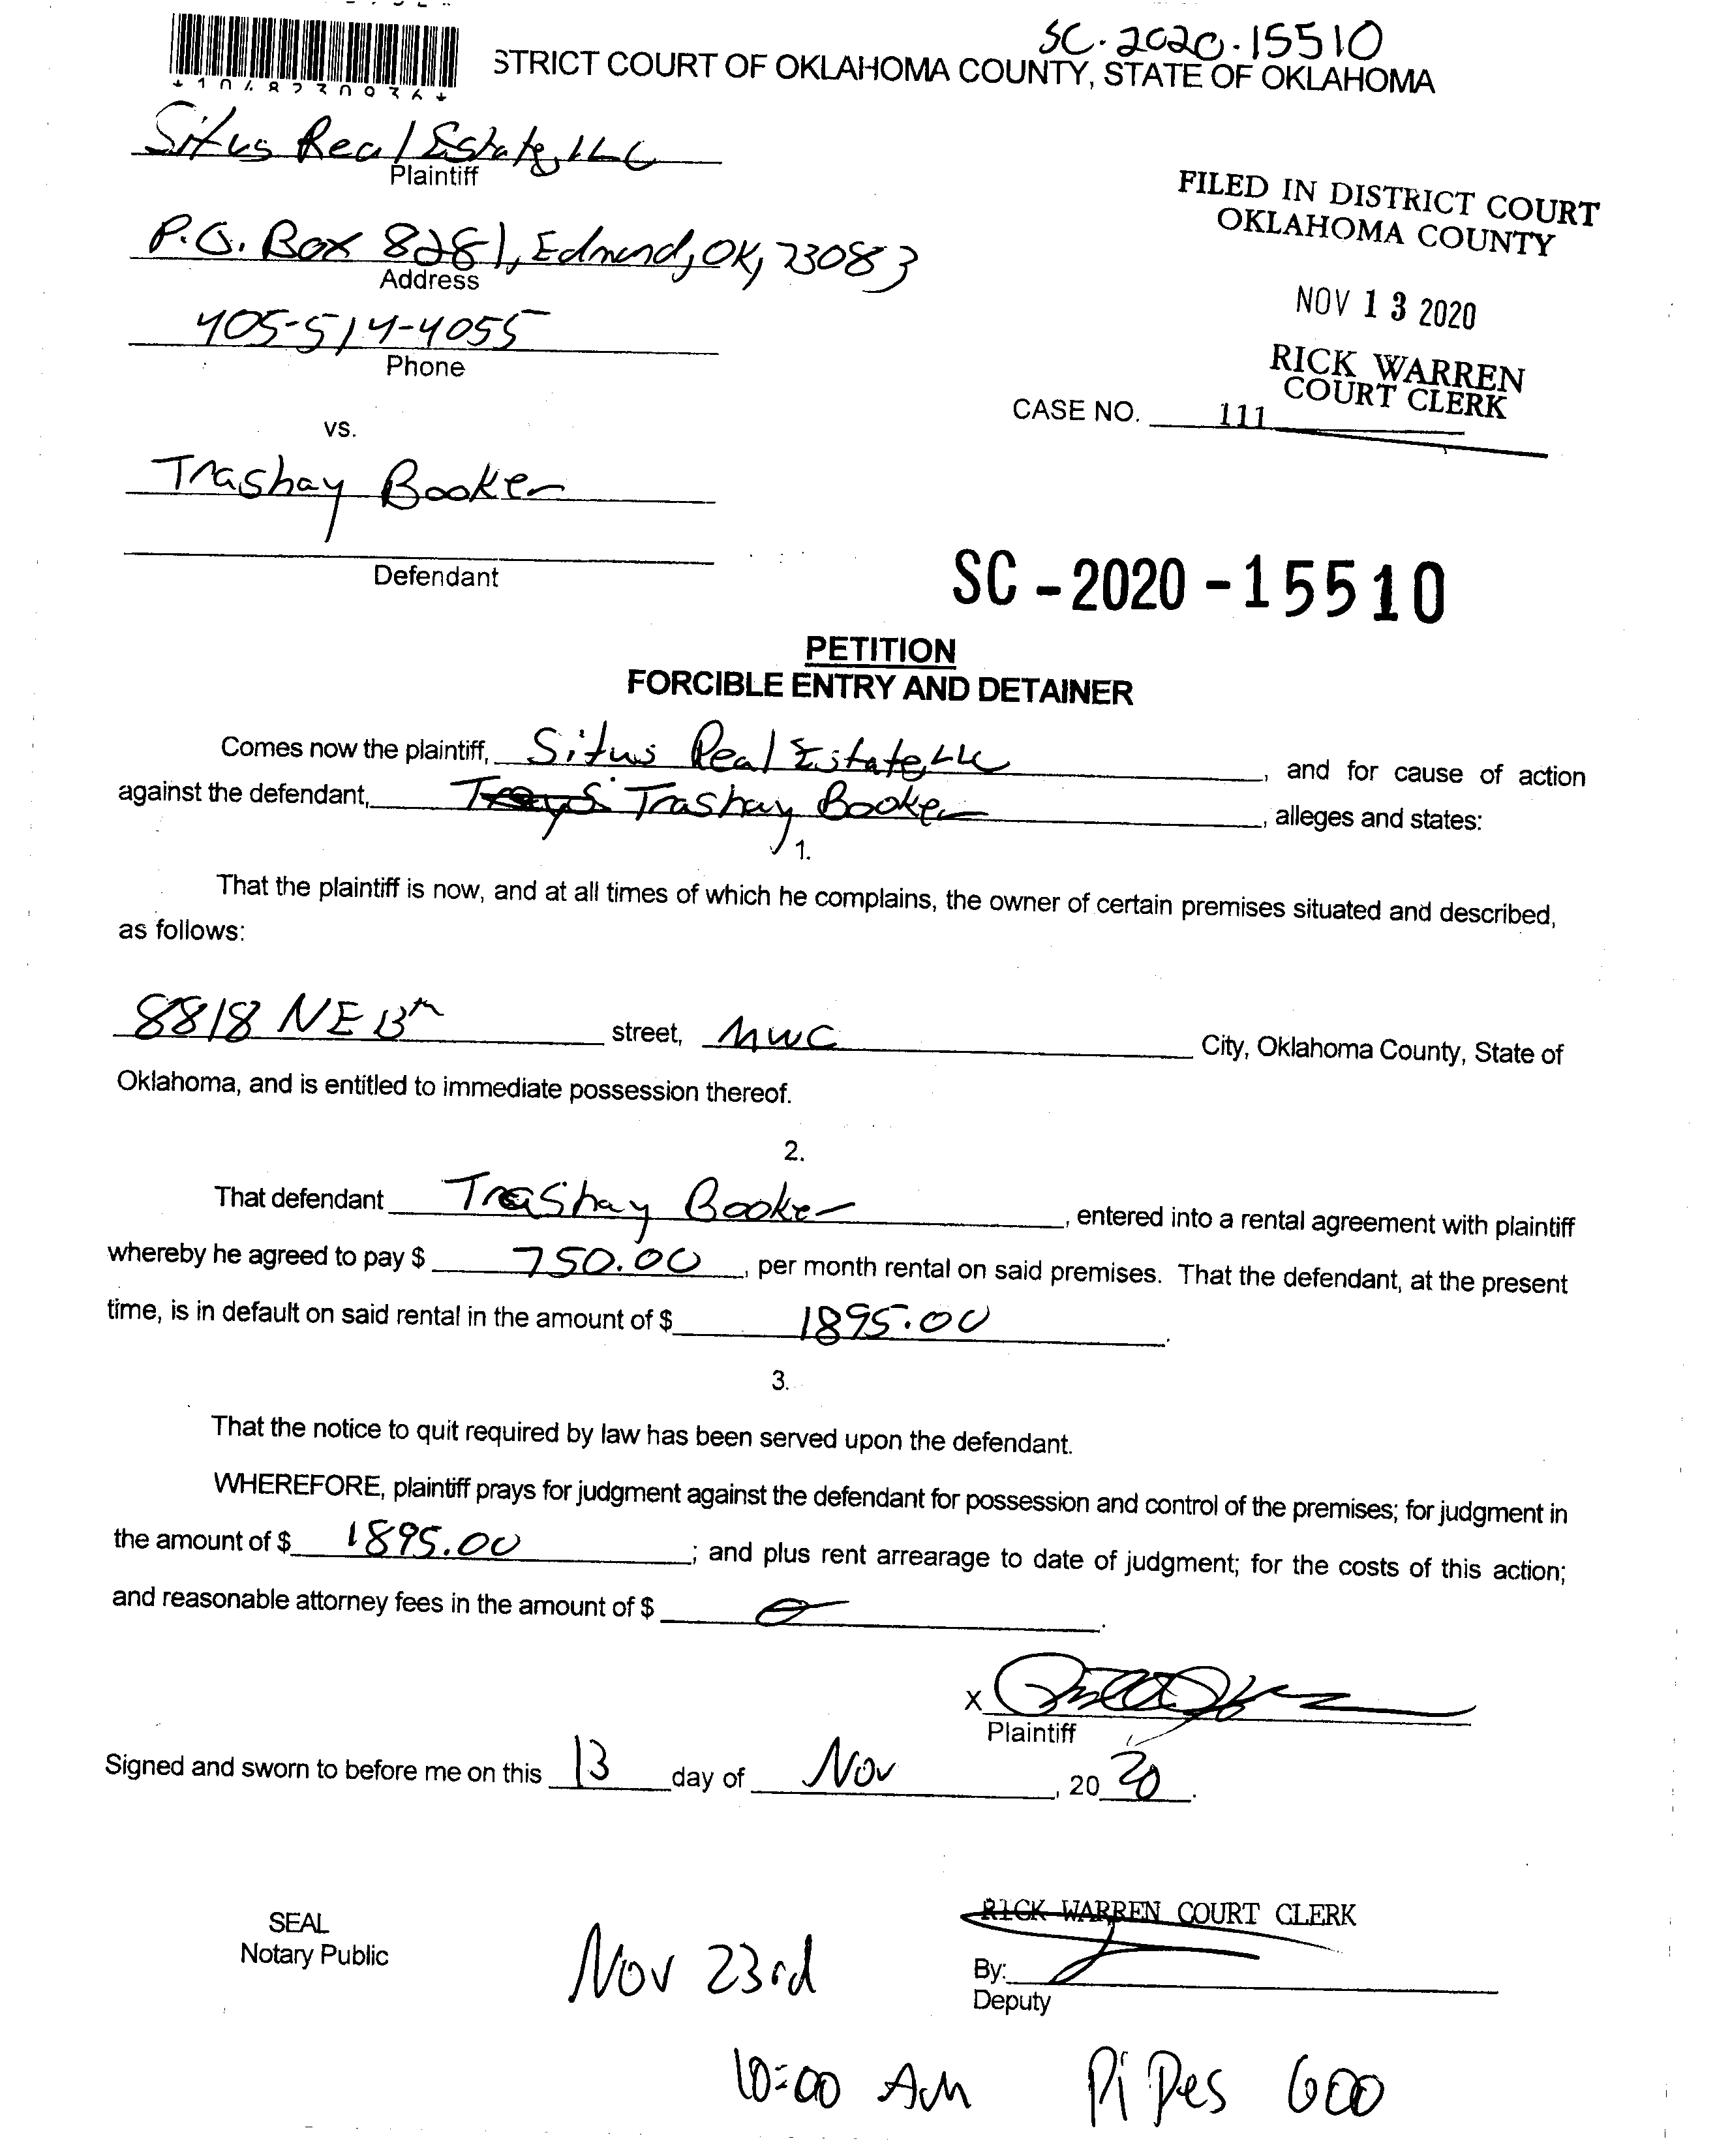 SC-2020-15510
STRICT COURT OF OKLAHOMA COUNTY, STATE OF OKLAHOMA
Situs Real Estate, LLC
Plaintiff
P.O. Box 8281, Edmond, OK, 73083
Address
405-514-4055
Phone
FILED IN DISTRICT COURT
OKLAHOMA COUNTY
NOV 13 2020
RICK WARREN
COURT CLERK
CASE NO. 111
vs.
Trashay Booker
Defendant
SC-2020-15510
PETITION
FORCIBLE ENTRY AND DETAINER
Comes now the plaintiff, Situs Real Estate, LLC, and for cause of action
against the defendant, Trashay Booker, alleges and states:
1.
That the plaintiff is now, and at all times of which he complains, the owner of certain premises situated and described,
as follows:
8818 NE 13th street, MWC City, Oklahoma County, State of
Oklahoma, and is entitled to immediate possession thereof.
2.
That defendant Trashay Booker, entered into a rental agreement with plaintiff
whereby he agreed to pay $ 750.00, per month rental on said premises. That the defendant, at the present
time, is in default on said rental in the amount of $ 1895.00.
3.
That the notice to quit required by law has been served upon the defendant.
WHEREFORE, plaintiff prays for judgment against the defendant for possession and control of the premises; for judgment in
the amount of $ 1895.00; and plus rent arrearage to date of judgment; for the costs of this action;
and reasonable attorney fees in the amount of $ 0.
X
Plaintiff
Signed and sworn to before me on this 13 day of Nov, 2020.
SEAL
Notary Public
RICK WARREN COURT CLERK
By:
Deputy
Nov 23rd
10:00 AM Pipes 600